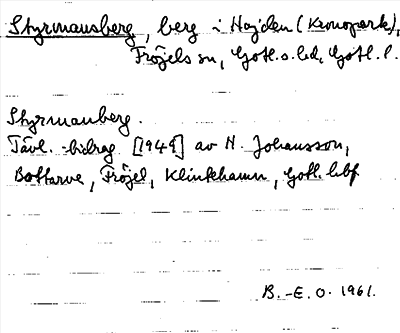 Styrmansberg, berg i Hajden (Kronopark),
Fröjels sn, Gotl. s. hd, Gotl. l.
Styrmansberg.
Tävl.-bidrag [1949] av H. Johansson,
Bottarve, Fröjel, Klintehamn, Gotl. hbf
B.-E. O. 1961.